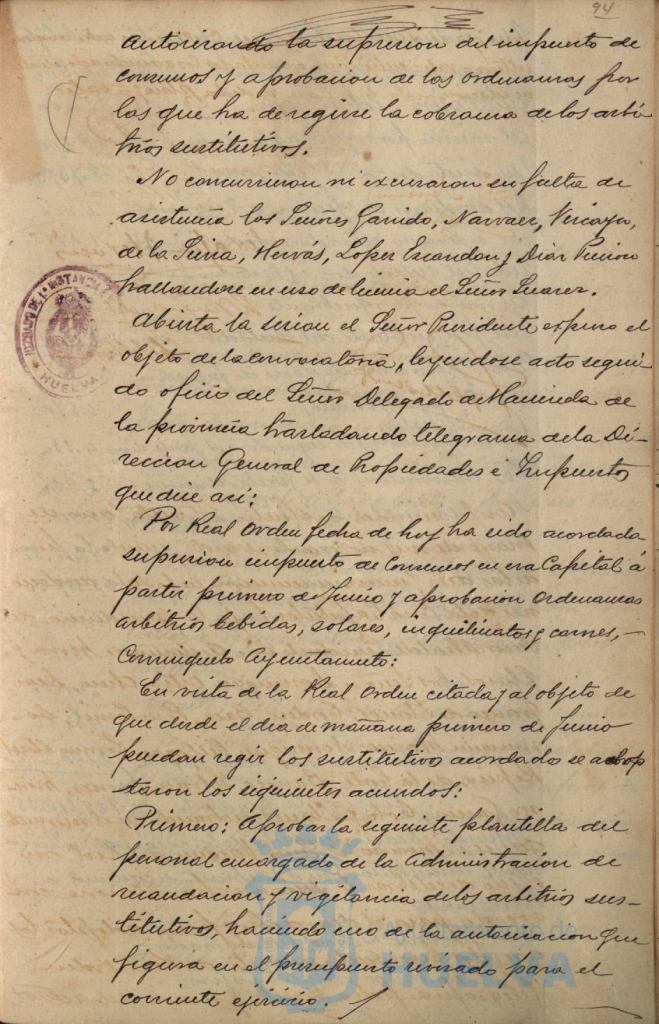 94
autorizando la supresion del impuesto de
consumos y aprobacion de las ordenanzas por
las que ha de regirse la cobranza de los arbi-
trios sustitutivos.
No concurrieron ni excusaron su falta de
asistencia los Señores Garrido, Narvaez, Vizcaya,
de la Seria, Hervás, Lopez Escandon y Diaz
hallandose en uso de licencia el Señor Suarez.
Abierta la sesion el Señor Presidente expuso el
objeto de la convocatoria, leyendose acto segui-
do oficio del Señor Delegado de Hacienda de
la provincia trasladando telegrama de la Di-
reccion General de Propiedades é Impuestos
que dice asi:
Por Real Orden fecha de hoy ha sido acordada
supresion impuesto de Consumos en esa Capital á
partir primero de Junio y aprobacion Ordenanzas
arbitrios bebidas, solares, inquilinatos y carnes,-
Comuniquelo Ayuntamiento:
En vista de la Real Orden citada y al objeto de
que desde el dia de mañana primero de Junio
puedan regir los sustitutivos acordado se adop
taron los siguientes acuerdos:
Primero: Aprobar la siguiente plantilla del
personal encargado de la Administracion de
recaudacion y vigilancia de los arbitrios sus-
titutivos, haciendo uso de la autorizacion que
figura en el presupuesto revisado para el
corriente ejercicio.
JUZGADO DE 1ª INSTANCIA
HUELVA
HUELVA